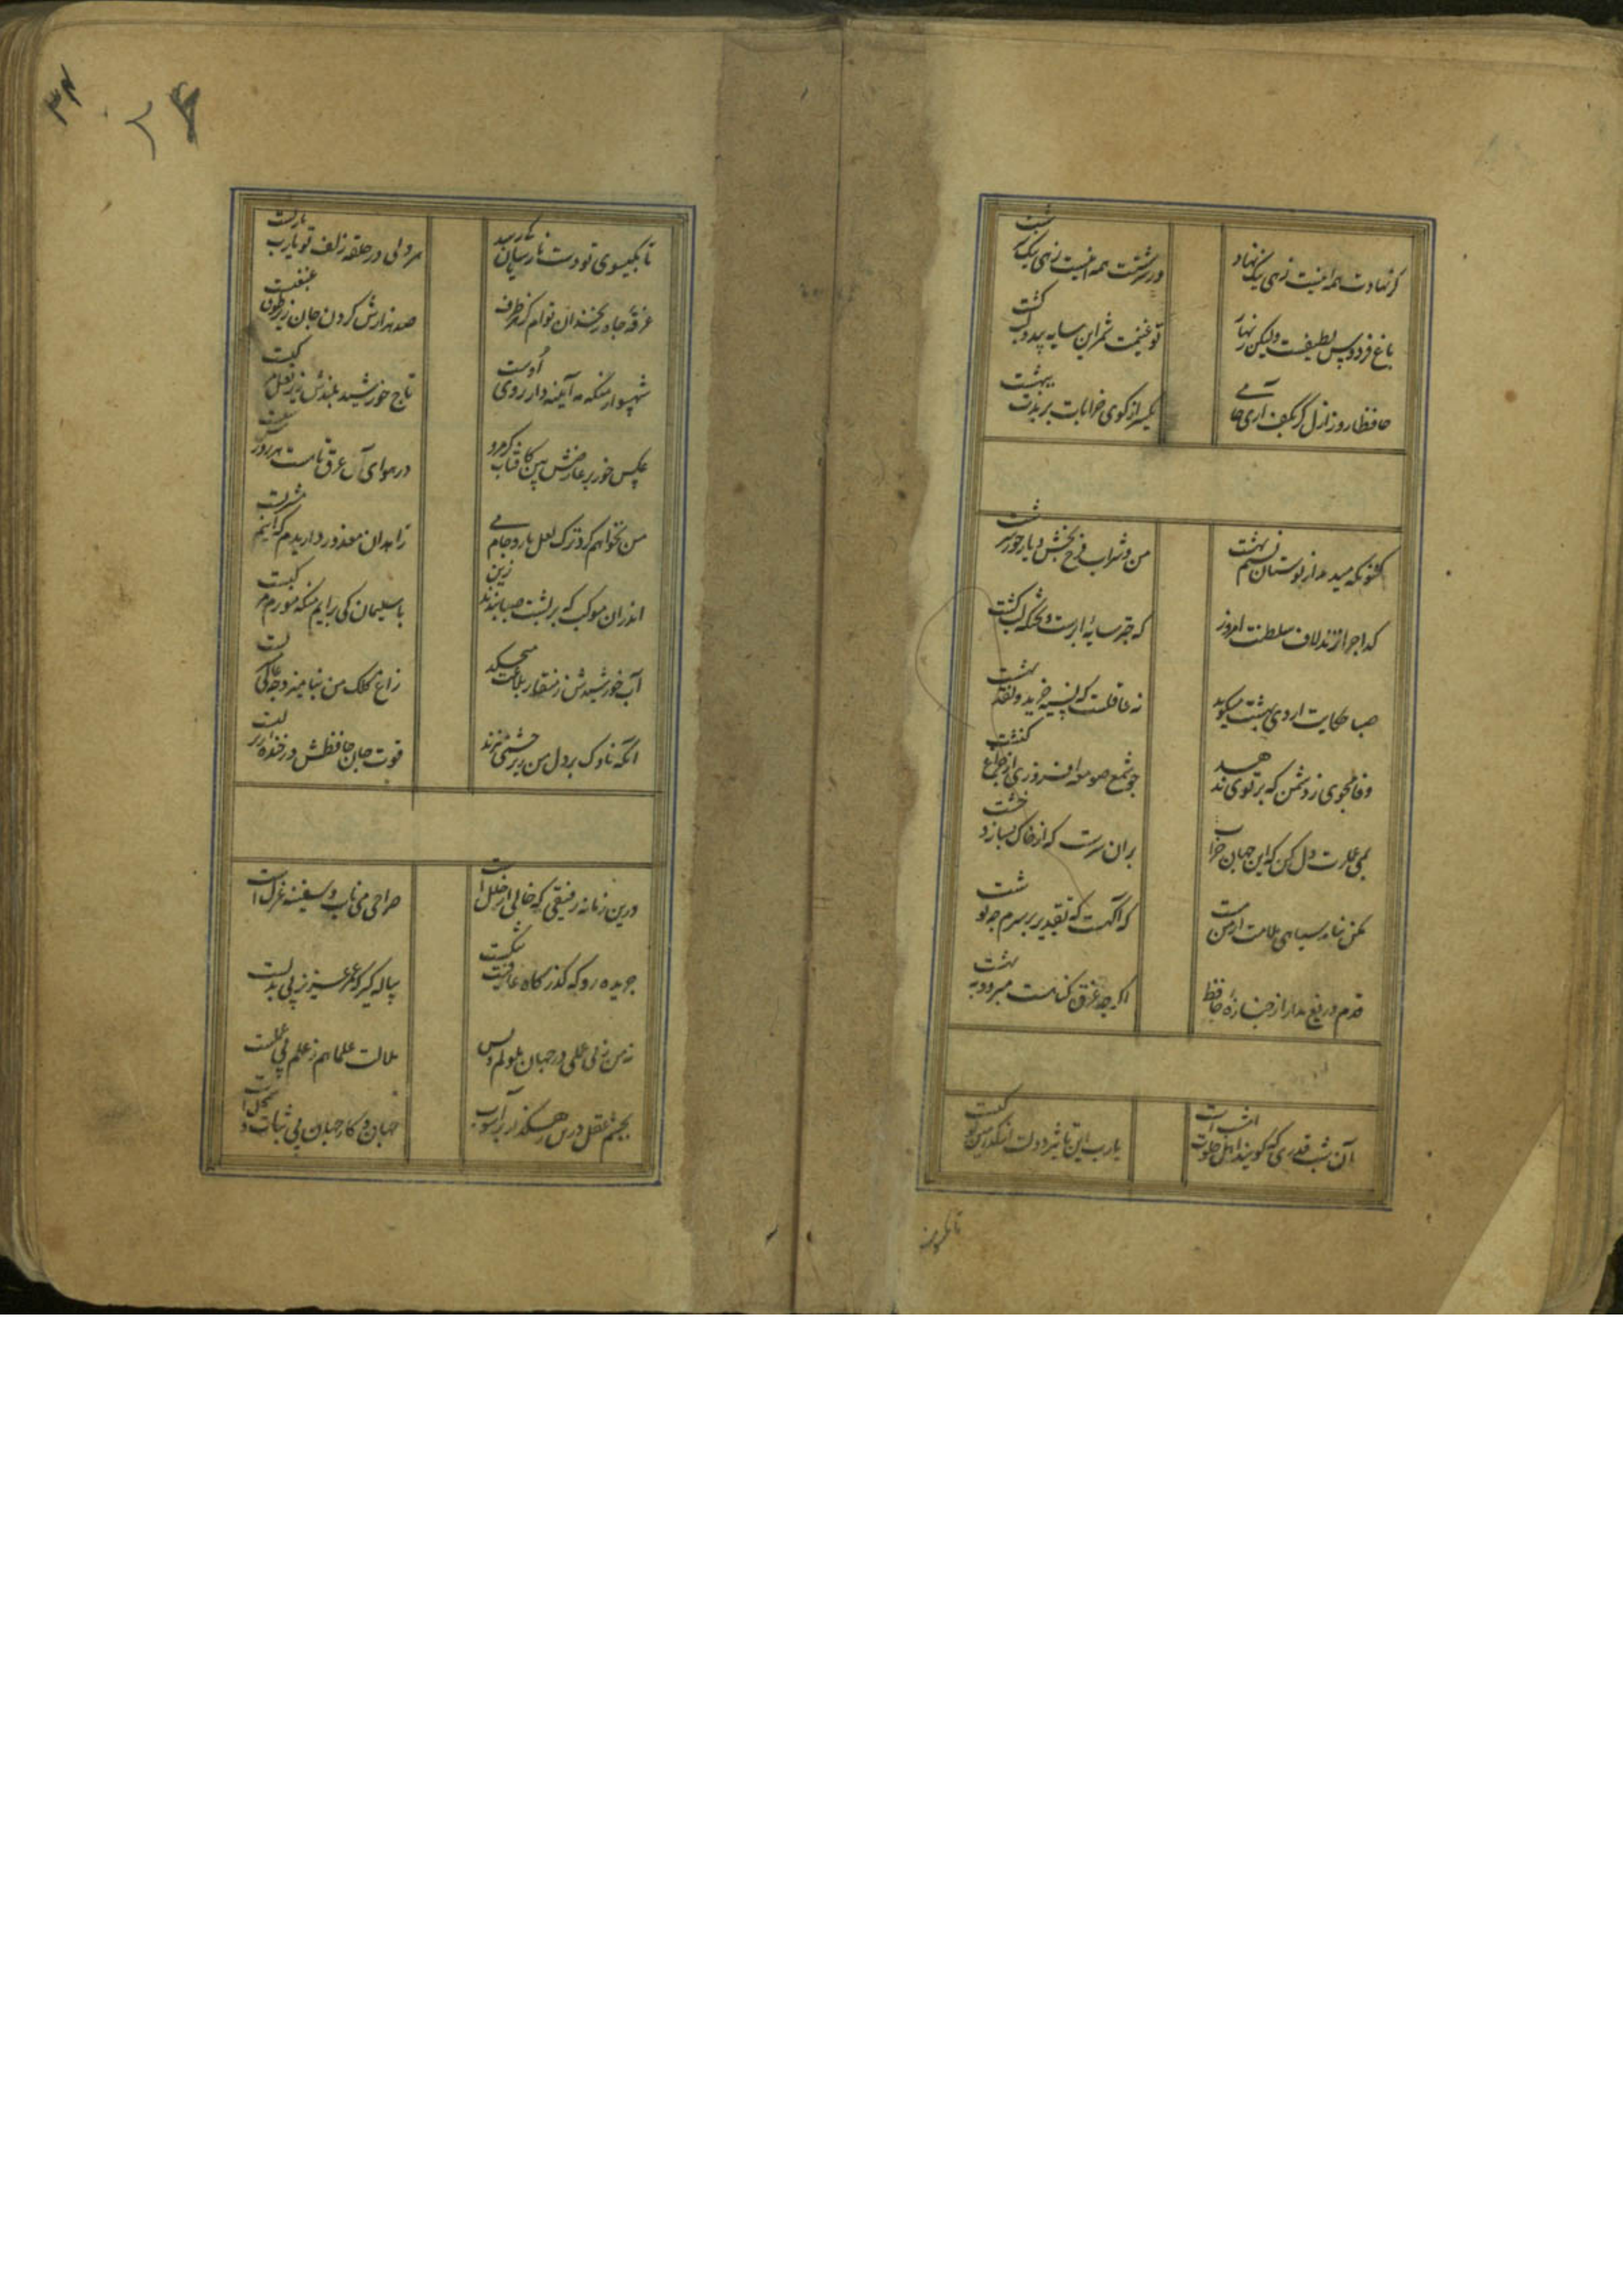 گر نهادت همه اینست زهی نیک نهاد
ور سرشتت همه اینست زهی نیک سرشت
باغ فردوس لطیفست ولیکن زنهار
تو غنیمت شمر این سایه بید و لب کشت
حافظا روز ازل گر بکف آری جامی
یکسر از کوی خرابات برندت ببهشت
کنونکه میدمد از بوستان نسیم بهشت
من و شراب فرح بخش و یار حور سرشت
گدا چرا نزند لاف سلطنت امروز
که خیمه سایه ابرست و بزمگه لب کشت
صبا حکایت اردی بهشت میگوید
نه عاقلست که نسیه خرید و نقد بهشت
وفا مجوی ز دشمن که پرتوی ندهد
چو شمع صومعه افروزی از چراغ کنشت
بمی عمارت دل کن که این جهان خراب
بران سرست که از خاک بسازد خشت
مکن بنامه سیاهی ملامت من مست
که آگهست که تقدیر بر سرم چه نوشت
قدم دریغ مدار از جنازه حافظ
اگر چه غرق گناهست میرود ببهشت
آن شب قدری که گویند اهل خلوت امشب است
یارب این تاثیر دولت از کدامین کوکبست
تا بگیسوی
تا بگیسوی تو دست ناسزایان کم رسد
هر دلی در حلقه زلف تو یارب یاربست
غرقه چاه زنخدان توام کز هر طرف
صد هزارش گردن جان زیر طوق غبغبست
شهسوار منکه مه آیینه دار روی اوست
تاج خورشید بلندش زیر نعل مرکبست
عکس خوی بر عارضش بین کافتاب گرم رو
در هوای آن عرق تا هست هر روزش تبست
من نخواهم کرد ترک لعل یار و جام می
زاهدان معذور داریدم که اینم مشربست
اندران موکب که بر پشت صبا بندند زین
با سلیمان کی برانم منکه مورم مرکبست
آب خورشیدش ز منقار بلاغت میچکد
زاغ کلک من
آنکه ناوک بر دل من زیر چشمی میزند
قوت جان حافظش در خنده زیر لبست
درین زمانه رفیقی که خالی از خلل است
صراحی می ناب و سفینه غزل است
جریده رو که گذرگاه عافیت تنگست
پیاله گیر که عمر عزیز بی بدلست
نه من ز بی عملی در جهان ملولم و بس
ملالت علما هم ز علم بی عملست
بچشم عقل درین رهگذار پر آشوب
جهان و کار جهان بی ثبات و